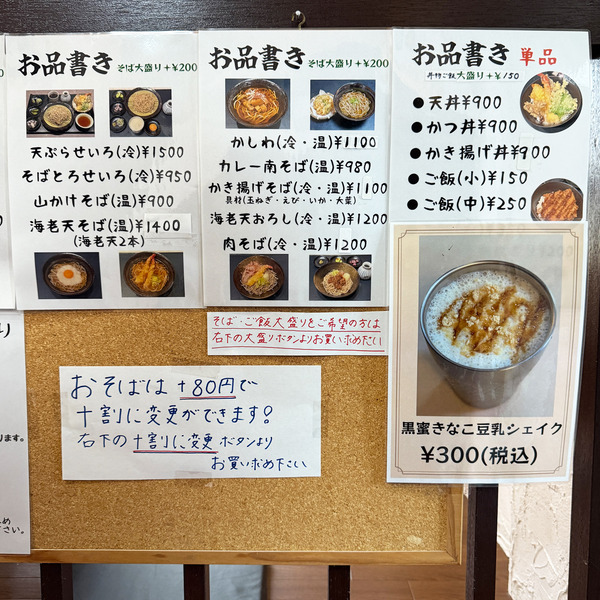 お品書き そば大盛り+¥200
天ぷらせいろ(冷)¥1500
そばとろせいろ(冷)¥950
山かけそば(温)¥900
海老天そば(温)¥1400
(海老天2本)
お品書き そば大盛り+¥200
かしわ(冷・温)¥1100
カレー南そば(温)¥980
かき揚げそば(冷・温)¥1100
具材(玉ねぎ・えび・いか・大葉)
海老天おろし(冷・温)¥1200
肉そば(冷・温)¥1200
お品書き 単品
丼物ご飯大盛り+¥150
●天丼¥900
●かつ丼¥900
●かき揚げ丼¥900
●ご飯(小)¥150
●ご飯(中)¥250
黒蜜きなこ豆乳シェイク
¥300(税込)
そば・ご飯大盛りをご希望の方は
右下の大盛りボタンよりお買い求め下さい
おそばは+80円で
十割に変更ができます!
右下の十割に変更ボタンより
お買い求め下さい
ります。
め
さい。